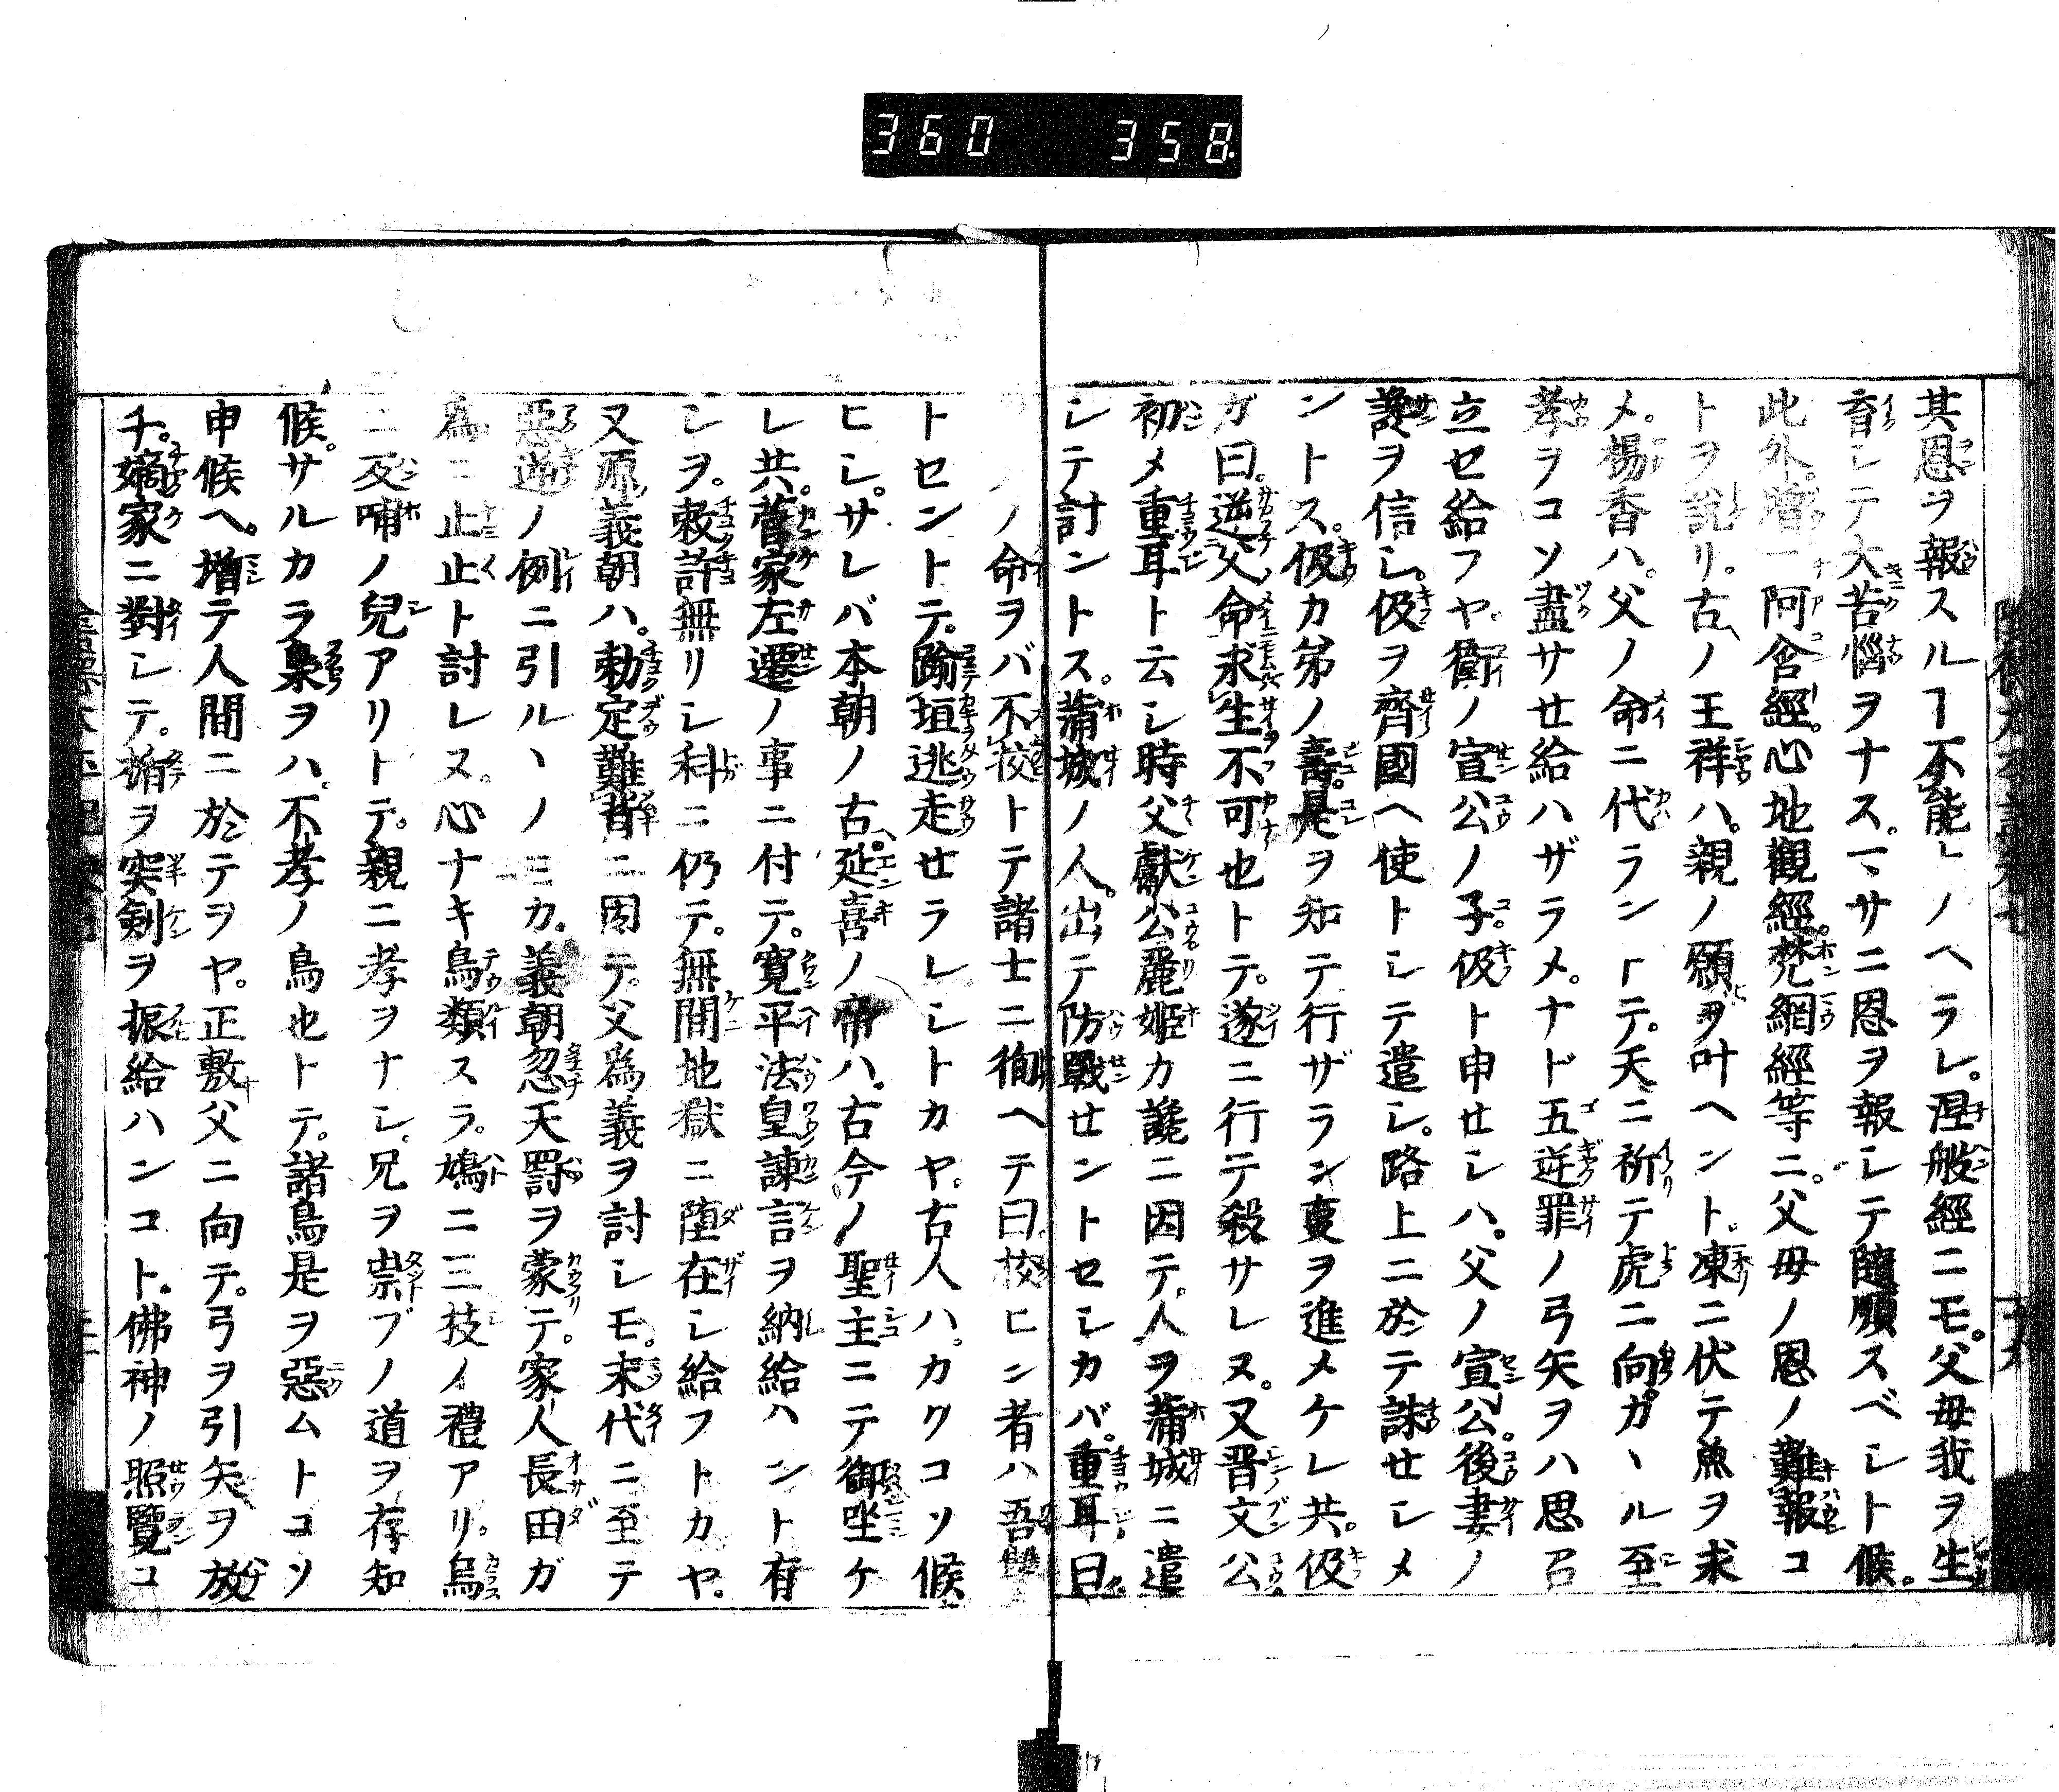 360 358
其恩ヲ報スルヿ不能ㇾノヘラレ。涅般經ニモ。父母我ヲ生
育シテ大苦惱ヲナス。マサニ恩ヲ報シテ隨順スベシト候。
此外。增一阿含經。心地觀經。梵網經等ニ。父母ノ恩ノ難報コ
トヲ説リ。古ノ王祥ハ。親ノ願ヲ叶ヘント。凍ニ伏テ魚ヲ求
メ。楊香ハ。父ノ命ニ代ラントテ。天ニ祈テ虎ニ向ガヽル至
孝ヲコソ盡サセ給ハザラメ。ナド五逆罪ノ弓矢ヲハ思召
立セ給フヤ。衛ノ宣公ノ子伋ト申セシハ。父ノ宣公。後妻ノ
讒ヲ信シ。伋ヲ齊國ヘ使トシテ遣シ。路上ニ於テ誅セシメ
ントス。伋カ弟ノ壽。是ヲ知テ行ザラン叓ヲ進メケレ共。伋
ガ曰。逆父命求生不可也トテ。遂ニ行テ殺サレヌ。又晋文公
初メ重耳ト云シ時父獻公麗姫カ讒ニ因テ。人ヲ蒲城ニ遣
シテ討ントス。蒲城ノ人。出テ防戰セントセシカバ。重耳曰。
ノ命ヲバ不挍トテ諸士ニ徇ヘテ曰。挍ヒン者ハ吾讎
トセントテ。踰垣逃走セラレシトカヤ。古人ハ。カクコソ候
ヒシ。サレバ本朝ノ古ヘ。延喜ノ帝ハ。古今ノ聖主ニテ御坐ケ
レ共。菅家左遷ノ事ニ付テ。寛平法皇諫言ヲ納給ハント有
シヲ。敕許無リシ科ニ仍テ。無間地獄ニ墮在シ給フトカヤ。
又源義朝ハ。勅定難背ニ因テ。父爲義ヲ討シモ。末代ニ至テ
惡逆ノ例ニ引ルヽノミカ。義朝忽天罰ヲ蒙テ。家人長田ガ
爲ニ止止ト討レヌ。心ナキ鳥類スラ。鳩ニ三枝ノ禮アリ。烏
ニ反哺ノ兒アリトテ。親ニ孝ヲナシ。兄ヲ崇ブノ道ヲ存知
候。サルカラ梟ヲハ。不孝ノ鳥也トテ。諸鳥是ヲ惡ムトコソ
申候ヘ。增テ人間ニ於テヲヤ。正敷父ニ向テ。弓ヲ引矢ヲ放
チ。嫡家ニ對シテ。楯ヲ突剣ヲ振給ハンコト。佛神ノ照覽コ